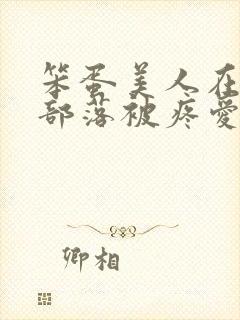 笨蛋美人在
部落被疼爱
卿相